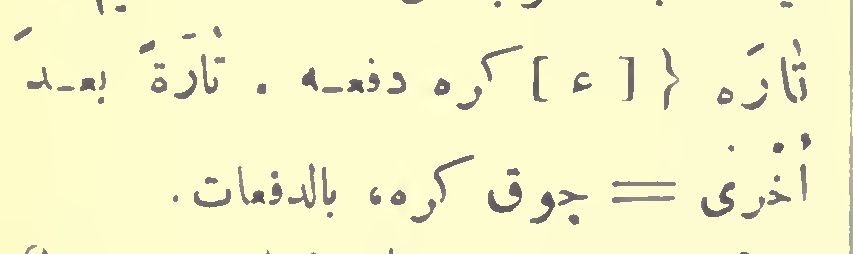 تَارَه {[ ء ] كره دفعـه . تَارَةً بعـدَ
أُخْرٰى = جوق كره، بالدفعات.